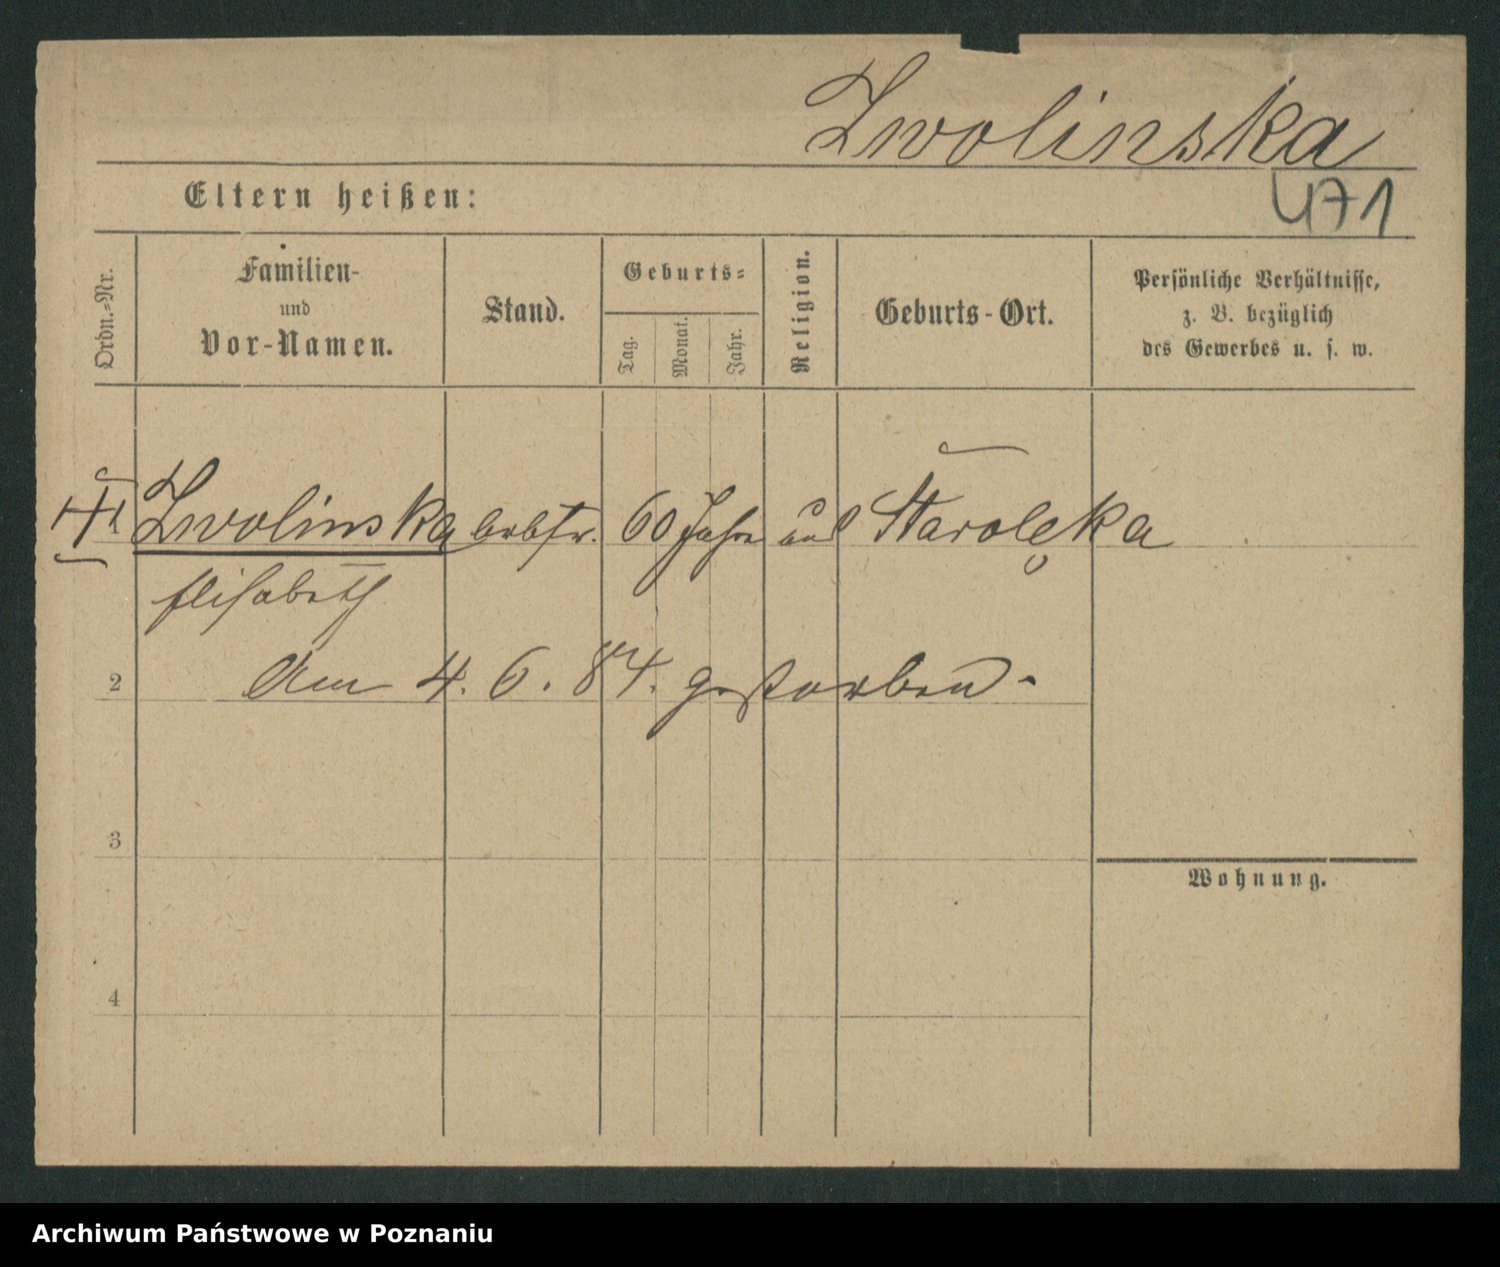 Zwolinska
471
Eltern heißen:
Ordn.=Nr.
Familien-
und
Vor-Namen.
Stand.
Geburts=
Tag.
Monat.
Jahr.
Religion.
Geburts-Ort.
Persönliche Verhältnisse,
z. B. bezüglich
des Gewerbes u. s. w.
1 Zwolinska arbfr. 60 Jahre aus Starolęka
Elisabeth
2 Am 4. 6. 84. gestorben.
3
Wohnung.
4
Archiwum Państwowe w Poznaniu